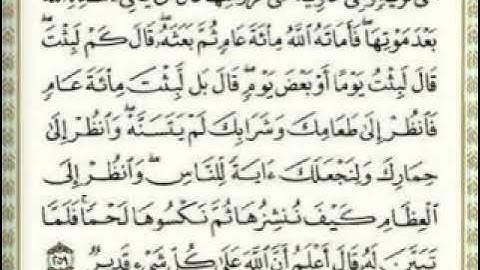 بَعْدَ مَوْتِهَا ۖ فَأَمَاتَهُ ٱللَّهُ مِا۟ئَةَ عَامٍ ثُمَّ بَعَثَهُۥ ۖ قَالَ كَمْ لَبِثْتَ ۖ
قَالَ لَبِثْتُ يَوْمًا أَوْ بَعْضَ يَوْمٍ ۖ قَالَ بَل لَّبِثْتَ مِا۟ئَةَ عَامٍ
فَٱنظُرْ إِلَىٰ طَعَامِكَ وَشَرَابِكَ لَمْ يَتَسَنَّهْ ۖ وَٱنظُرْ إِلَىٰ
حِمَارِكَ وَلِنَجْعَلَكَ ءَايَةً لِّلنَّاسِ ۖ وَٱنظُرْ إِلَى
ٱلْعِظَامِ كَيْفَ نُنشِزُهَا ثُمَّ نَكْسُوهَا لَحْمًا ۚ فَلَمَّا
تَبَيَّنَ لَهُۥ قَالَ أَعْلَمُ أَنَّ ٱللَّهَ عَلَىٰ كُلِّ شَىْءٍ قَدِيرٌ ٢٥٩